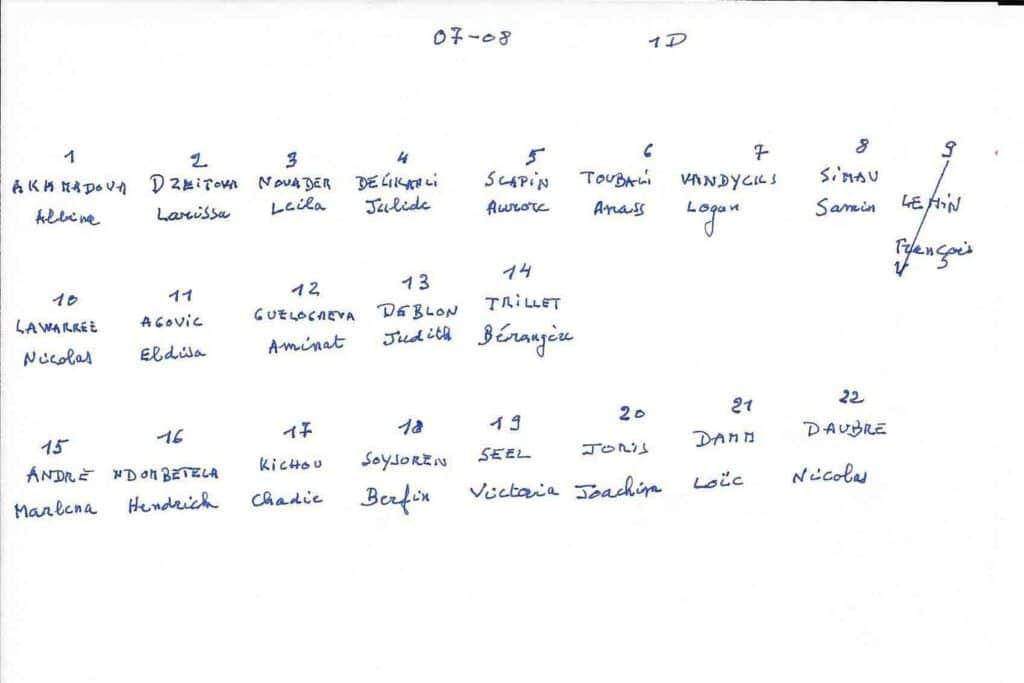 07-08 1D
1 2 3 4 5 6 7 8 9
AKHMADOVA DZEITOVA NOVADER DELIKANLI SCAPIN TOUBALI VANDYCKS SIMAU LEMIN
Albina Larissa Leila Julide Aurore Anass Logan Samin François
10 11 12 13 14
LAWARRÉE AGOVIC GUELOGAEVA DEBLON TRILLET
Nicolas Eldisa Aminat Judith Bérangère
15 16 17 18 19 20 21 22
ANDRÉ NDOMBETELA KICHOU SOYSOREN SEEL JORIS DAMM DAUBRE
Marlena Hendrick Chadie Berfin Victoria Joachim Loïc Nicolas